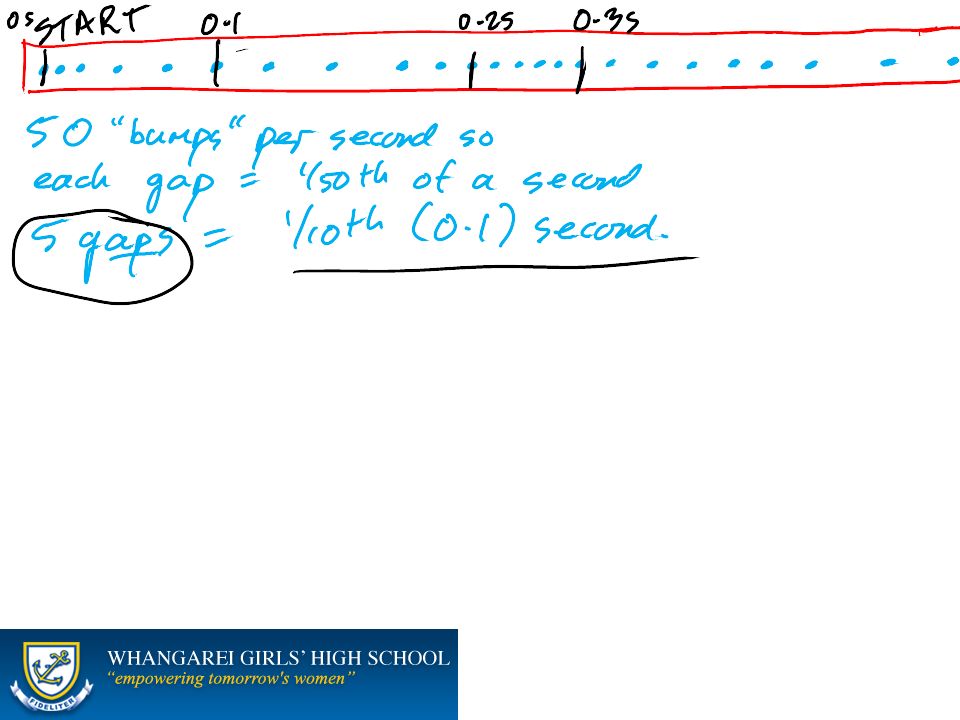 0s START 0.1 0.2s 0.3s
50 "bumps" per second so
each gap = 1/50th of a second
5 gaps = 1/10th (0.1) second.
WHANGAREI GIRLS' HIGH SCHOOL
"empowering tomorrow's women"
FIDELITER